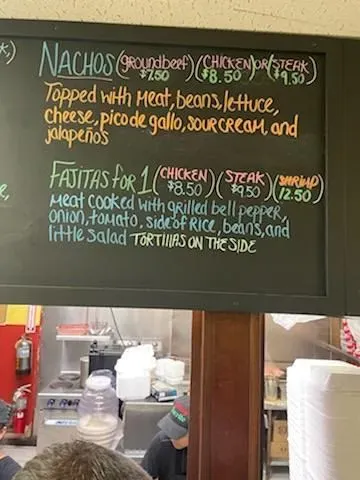 NACHOS (groundbeef) (CHICKEN) or (STEAK)
$7.50 $8.50 $9.50
Topped with meat, beans, lettuce,
cheese, pico de gallo, sour cream, and
jalapeños
FAJITAS for 1 (CHICKEN) (STEAK) (SHRIMP)
$8.50 $9.50 12.50
meat cooked with grilled bell pepper,
onion, tomato, side of rice, beans, and
little salad TORTILLAS ON THE SIDE